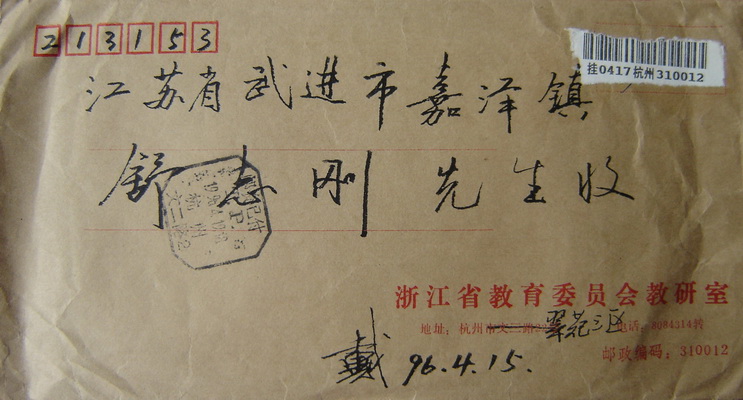 213153
挂0417杭州310012
江苏省武进市嘉泽镇
舒志刚 先生收
浙江省教育委员会教研室
地址：杭州市文二路 翠苑三区 电话：8084314转
邮政编码：310012
戴 96.4.15.